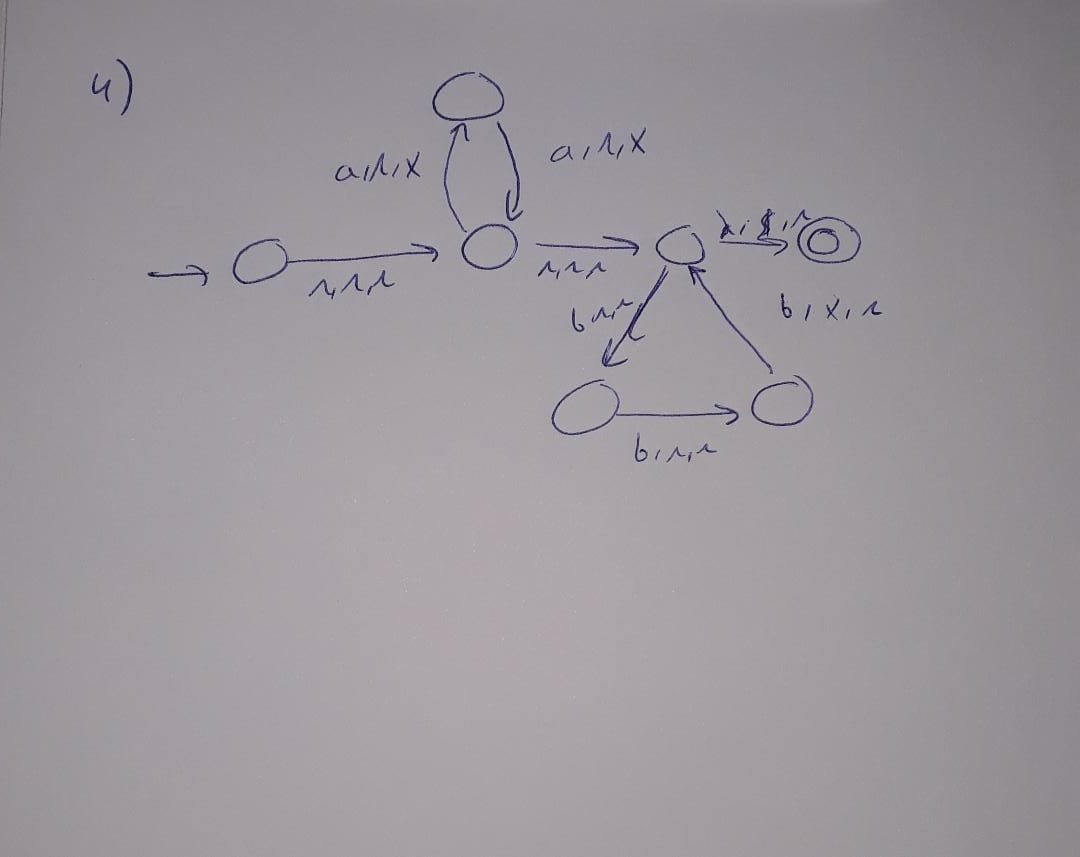 4)
a, λ, x
a, λ, x
λ, $, λ
λ, λ, λ
λ, λ, λ
b λ, λ
b, x, λ
b, λ, λ